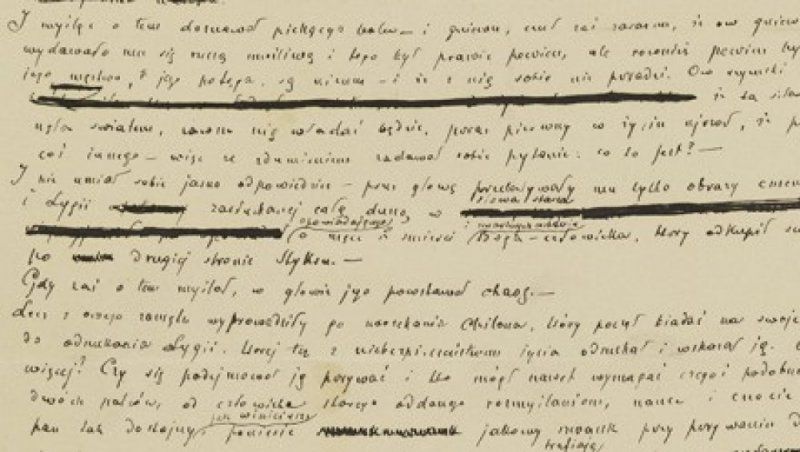 I myśląc o tem doznawał piekącego bólu — i gniewu, czuł zaś zarazem, że ów gniew
wydawało mu się rzeczą możliwą i tego był prawie pewien, ale również pewien był
jego męstwo, i jego potęga, są niczem — i że z nią sobie nie poradzi. Ów rzymski
że ta siła
światem, zawsze nią władać będzie, poraz pierwszy w życiu ujrzał, że p
coś innego — więc ze zdumieniem zadawał sobie pytanie: co to jest? —
I nie umiał sobie jasno odpowiedzieć — przez głowę przelatywały mu tylko obrazy cmen
słowa starca
i Lygii zasłuchanej całą duszą w
opowiadającego
o męce i śmierci Boga-człowieka, który odkupił św
po drugiej stronie Styksu. —
Gdy zaś o tem myślał, w głowie jego powstawał chaos. —
Lecz z owego zamętu wyprowadziły go narzekania Chilona, który począł biadać na swoje
do odszukania Lygii, którą też z niebezpieczeństwem życia odszukał i wskazał ją.
więcej? Czy się podejmował ją porywać i kto mógł nawet wymagać czegoś podobne
dwóch palców, od człowieka starego oddanego rozmyślaniom, nauce i cnocie
jak Winicius
pan tak dostojny, poniesie jakowyś szwank przy porywaniu d